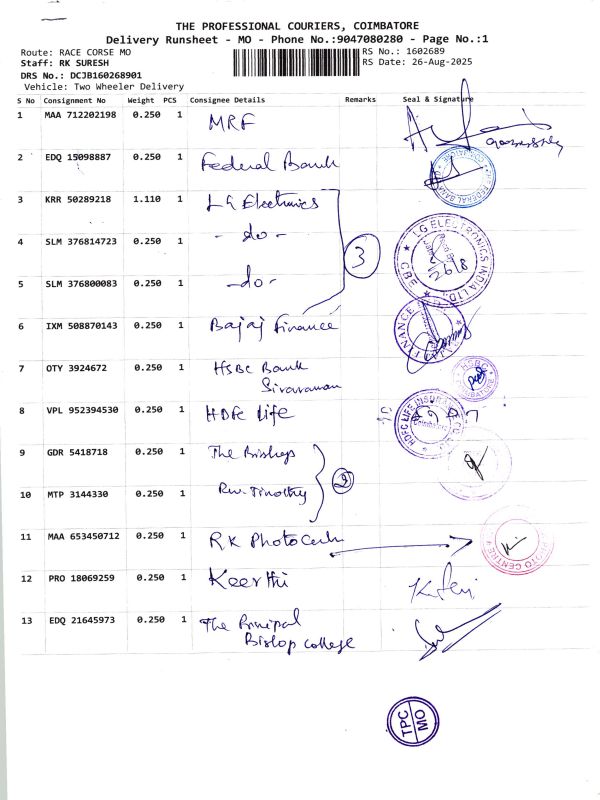 THE PROFESSIONAL COURIERS, COIMBATORE
Delivery Runsheet - MO - Phone No.:9047080280 - Page No.:1
Route: RACE CORSE MO
RS No.: 1602689
Staff: RK SURESH
RS Date: 26-Aug-2025
DRS No.: DCJB160268901
Vehicle: Two Wheeler Delivery
S No Consignment No Weight PCS Consignee Details Remarks Seal & Signature
1 MAA 712202198 0.250 1 MRF
2 EDQ 15098887 0.250 1 Federal Bank
3 KRR 50289218 1.110 1 LG Electronics
4 SLM 376814723 0.250 1 - do -
3
5 SLM 376800083 0.250 1 - do -
LG ELECTRONICS INDIA LTD. CBE
26/8
6 IXM 508870143 0.250 1 Bajaj Finance
7 OTY 3924672 0.250 1 HSBC Bank
Sivaraman
8 VPL 952394530 0.250 1 HDFC Life
HDFC LIFE INSURANCE CO
Coimbatore
9 GDR 5418718 0.250 1 The Bishop
10 MTP 3144330 0.250 1 Rev. Timothy
2
11 MAA 653450712 0.250 1 RK Photo Centre
PHOTO CENTRE
12 PRO 18069259 0.250 1 Keerthi
13 EDQ 21645973 0.250 1 The Principal
Bishop College
TPC
MO